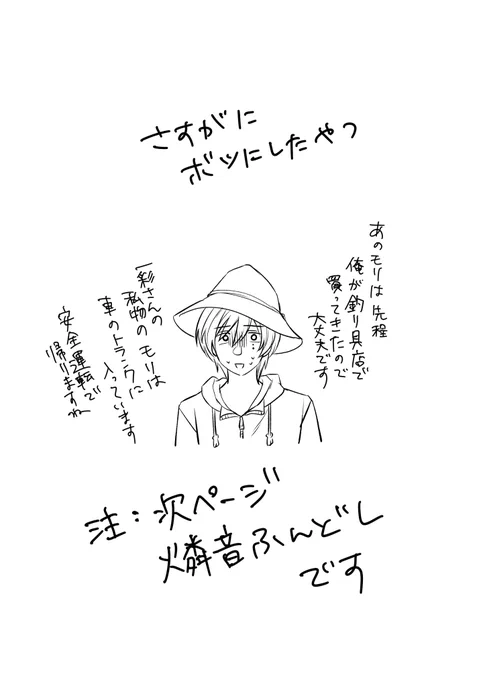 さすがに
ボツにしたやつ
あのモリは先程
俺が釣り具店で
買ってきたので
大丈夫です
一彩さんの
私物のモリは
車のトランクに
入っています
安全運転で
帰りますね
注：次ページ
燐音ふんどし
です